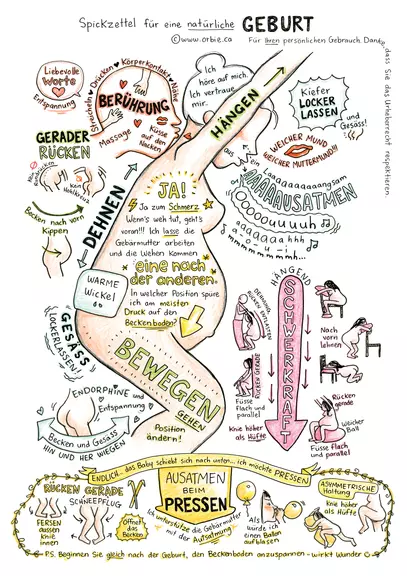 Spickzettel für eine natürliche GEBURT
©www.orbie.ca
Für Ihren persönlichen Gebrauch. Danke,
dass Sie das Urheberrecht respektieren.
Liebevolle
Worte
Entspannung
Streicheln Drücken Körperkontakt Nähe
BERÜHRUNG
Massage
Küsse
auf den
Nacken
Ich
höre auf mich.
Ich vertraue
mir.
HÄNGEN
Kiefer
LOCKER
LASSEN
und
Gesäss!
WEICHER MUND
WEICHER MUTTERMUND!!!
GERADER
RÜCKEN
kein
Hohlkreuz
Becken nach vorn
Kippen
DEHNEN
aus
ein
laaaaaaaaaaangsam
AAAAUSATMEN
Ooooooouuuuh
aaaaaaaahhh
a-o-u-i-
mmmmm
JA!
Ja zum Schmerz
Wenn's weh tut, geht's
voran!!! Ich lasse die
Gebärmutter arbeiten
und die Wehen kommen,
eine nach
der anderen.
In welcher Position spüre
ich am meisten
Druck auf den
Beckenboden?
WARME
Wickel
GESÄSS
LOCKERLASSEN!
BEWEGEN
GEHEN
Position
ändern!
ENDORPHINE und
Entspannung
Becken und Gesäss
HIN UND HER WIEGEN
HÄNGEN
SCHWERKRAFT
DEHNUNG
RÜCKEN ENTLASTEN
RÜCKEN GERADE
Füsse
flach und
parallel
Knie höher
als Hüfte
Nach
vorn
lehnen
Rücken
gerade
Weicher
Ball
Füsse flach
und parallel
ENDLICH... das Baby schiebt sich nach unten... ich möchte PRESSEN
RÜCKEN GERADE
SCHNEEPFLUG
FERSEN
aussen
KNIE
innen
Öffnet das
Becken
AUSATMEN
BEIM
PRESSEN
Ich unterstütze die Gebärmutter
mit der Ausatmung
Als
würde ich
einen Ballon
aufblasen
ASYMMETRISCHE
Haltung
Knie höher
als Hüfte
FERSEN
aussen
KNIE
innen
P.S. Beginnen Sie gleich nach der Geburt, den Beckenboden anzuspannen - wirkt Wunder ☺